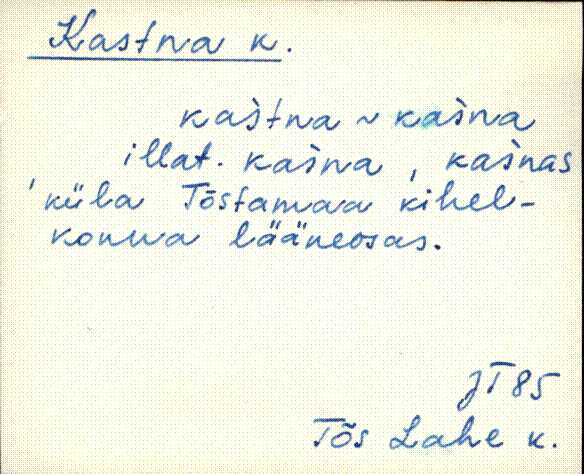 Kastna k.
kaśtna ~ kaśna
illat. kaśna, kaśnas
'küla Tõstamaa kihel-
konna lääneosas.
JT85
Tõs Lahe k.